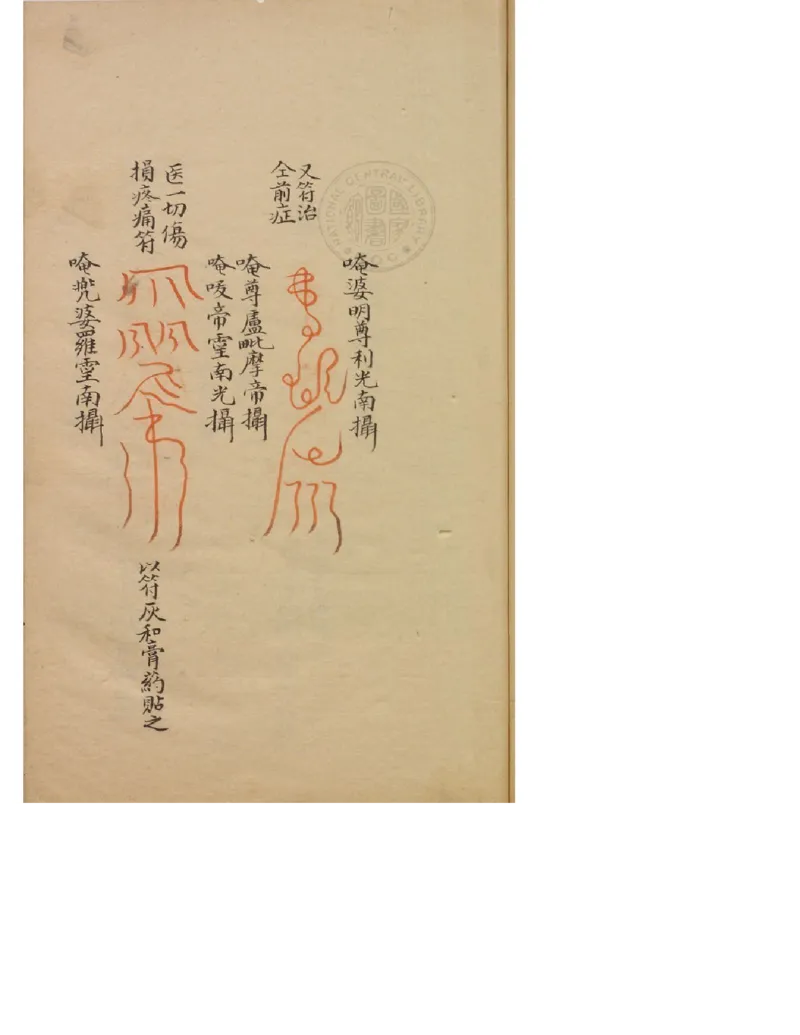 唵婆明尊利光南攝
又符治
仝前症
唵尊盧毗摩帝攝
唵唆帝霻南光攝
医一切傷
損疼痛符
唵兜婆羅霻南攝
以符灰和膏葯貼之
NATIONAL CENTRAL LIBRARY